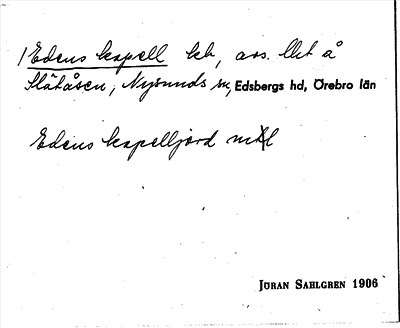 1 Edens kapell kb, avs. lht å
Slätåsen, Nysunds sn, Edsbergs hd, Örebro län
Edens kapelljord
JÖRAN SAHLGREN 1906